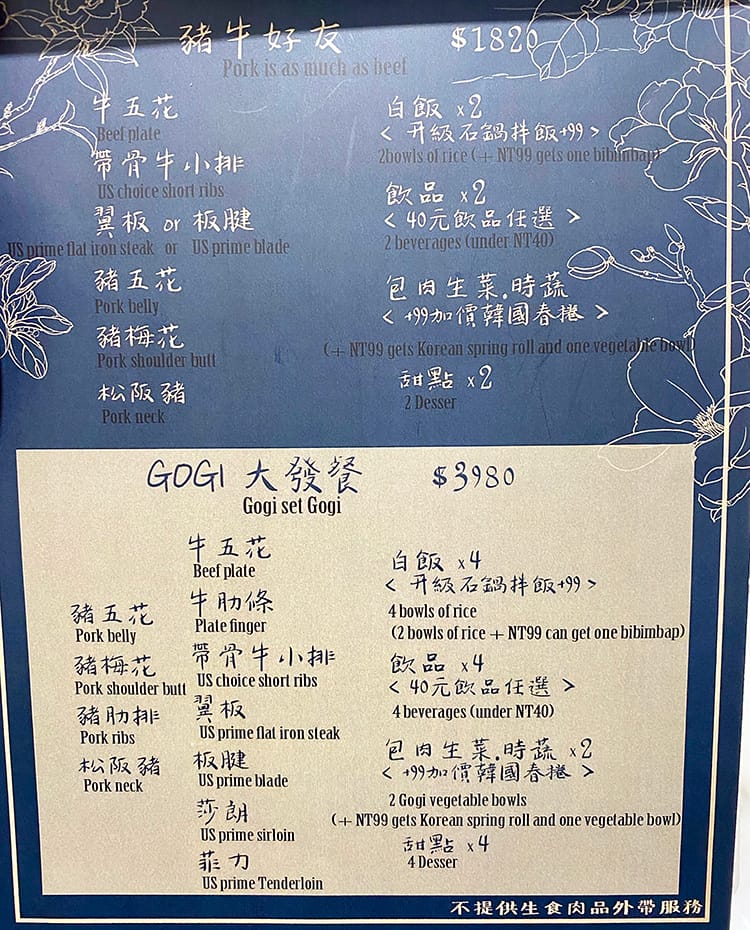 豬牛好友 $1820
Pork is as much as beef
牛五花
Beef plate
帶骨牛小排
US choice short ribs
翼板 or 板腱
US prime flat iron steak or US prime blade
豬五花
Pork belly
豬梅花
Pork shoulder butt
松阪豬
Pork neck
白飯 x2
< 升級石鍋拌飯+99 >
2bowls of rice (+ NT99 gets one bibimbap)
飲品 x2
< 40元飲品任選 >
2 beverages (under NT40)
包肉生菜.時蔬
< +99加價韓國春捲 >
(+ NT99 gets Korean spring roll and one vegetable bowl)
甜點 x2
2 Desser
GOGI 大發餐 $3980
Gogi set Gogi
豬五花
Pork belly
豬梅花
Pork shoulder butt
豬肋排
Pork ribs
松阪豬
Pork neck
牛五花
Beef plate
牛肋條
Plate finger
帶骨牛小排
US choice short ribs
翼板
US prime flat iron steak
板腱
US prime blade
莎朗
US prime sirloin
菲力
US prime Tenderloin
白飯 x4
< 升級石鍋拌飯+99 >
4 bowls of rice
(2 bowls of rice + NT99 can get one bibimbap)
飲品 x4
< 40元飲品任選 >
4 beverages (under NT40)
包肉生菜.時蔬 x2
< +99加價韓國春捲 >
2 Gogi vegetable bowls
(+ NT99 gets Korean spring roll and one vegetable bowl)
甜點 x4
4 Desser
不提供生食肉品外帶服務